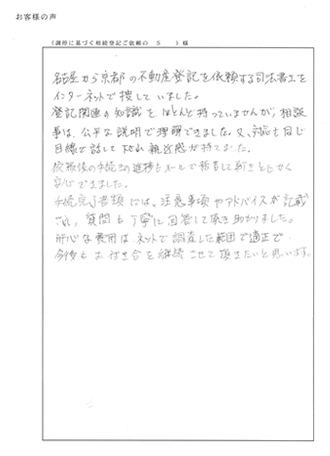 お客様の声
(調停に基づく相続登記ご依頼の S )様
名古屋から京都の不動産登記を依頼する司法書士を
インターネットで捜していました。
登記関連の知識をほとんど持っていませんが、相談
事は、公平な説明で理解できました。又、対応も同じ
目線で話して下され親近感が持てました。
依頼後の手続きの進捗もメールで報告して頂き
安心できました。
手続完了書類には、注意事項やアドバイスが記載
され、質問も丁寧に回答して頂き助かりました。
肝心な費用はネットで調査した範囲で適正で
今後もお付き合を継続させて頂きたいと思います。